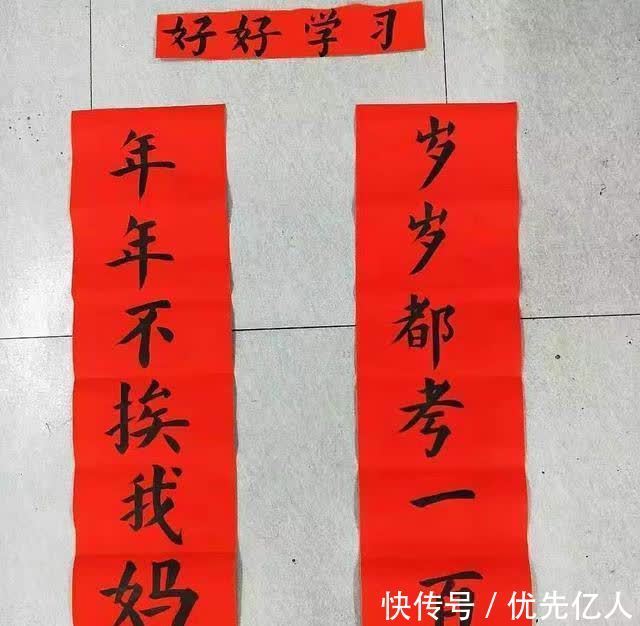 好好学习
年年不挨我妈
岁岁都考一百
快传号 / 优先亿人